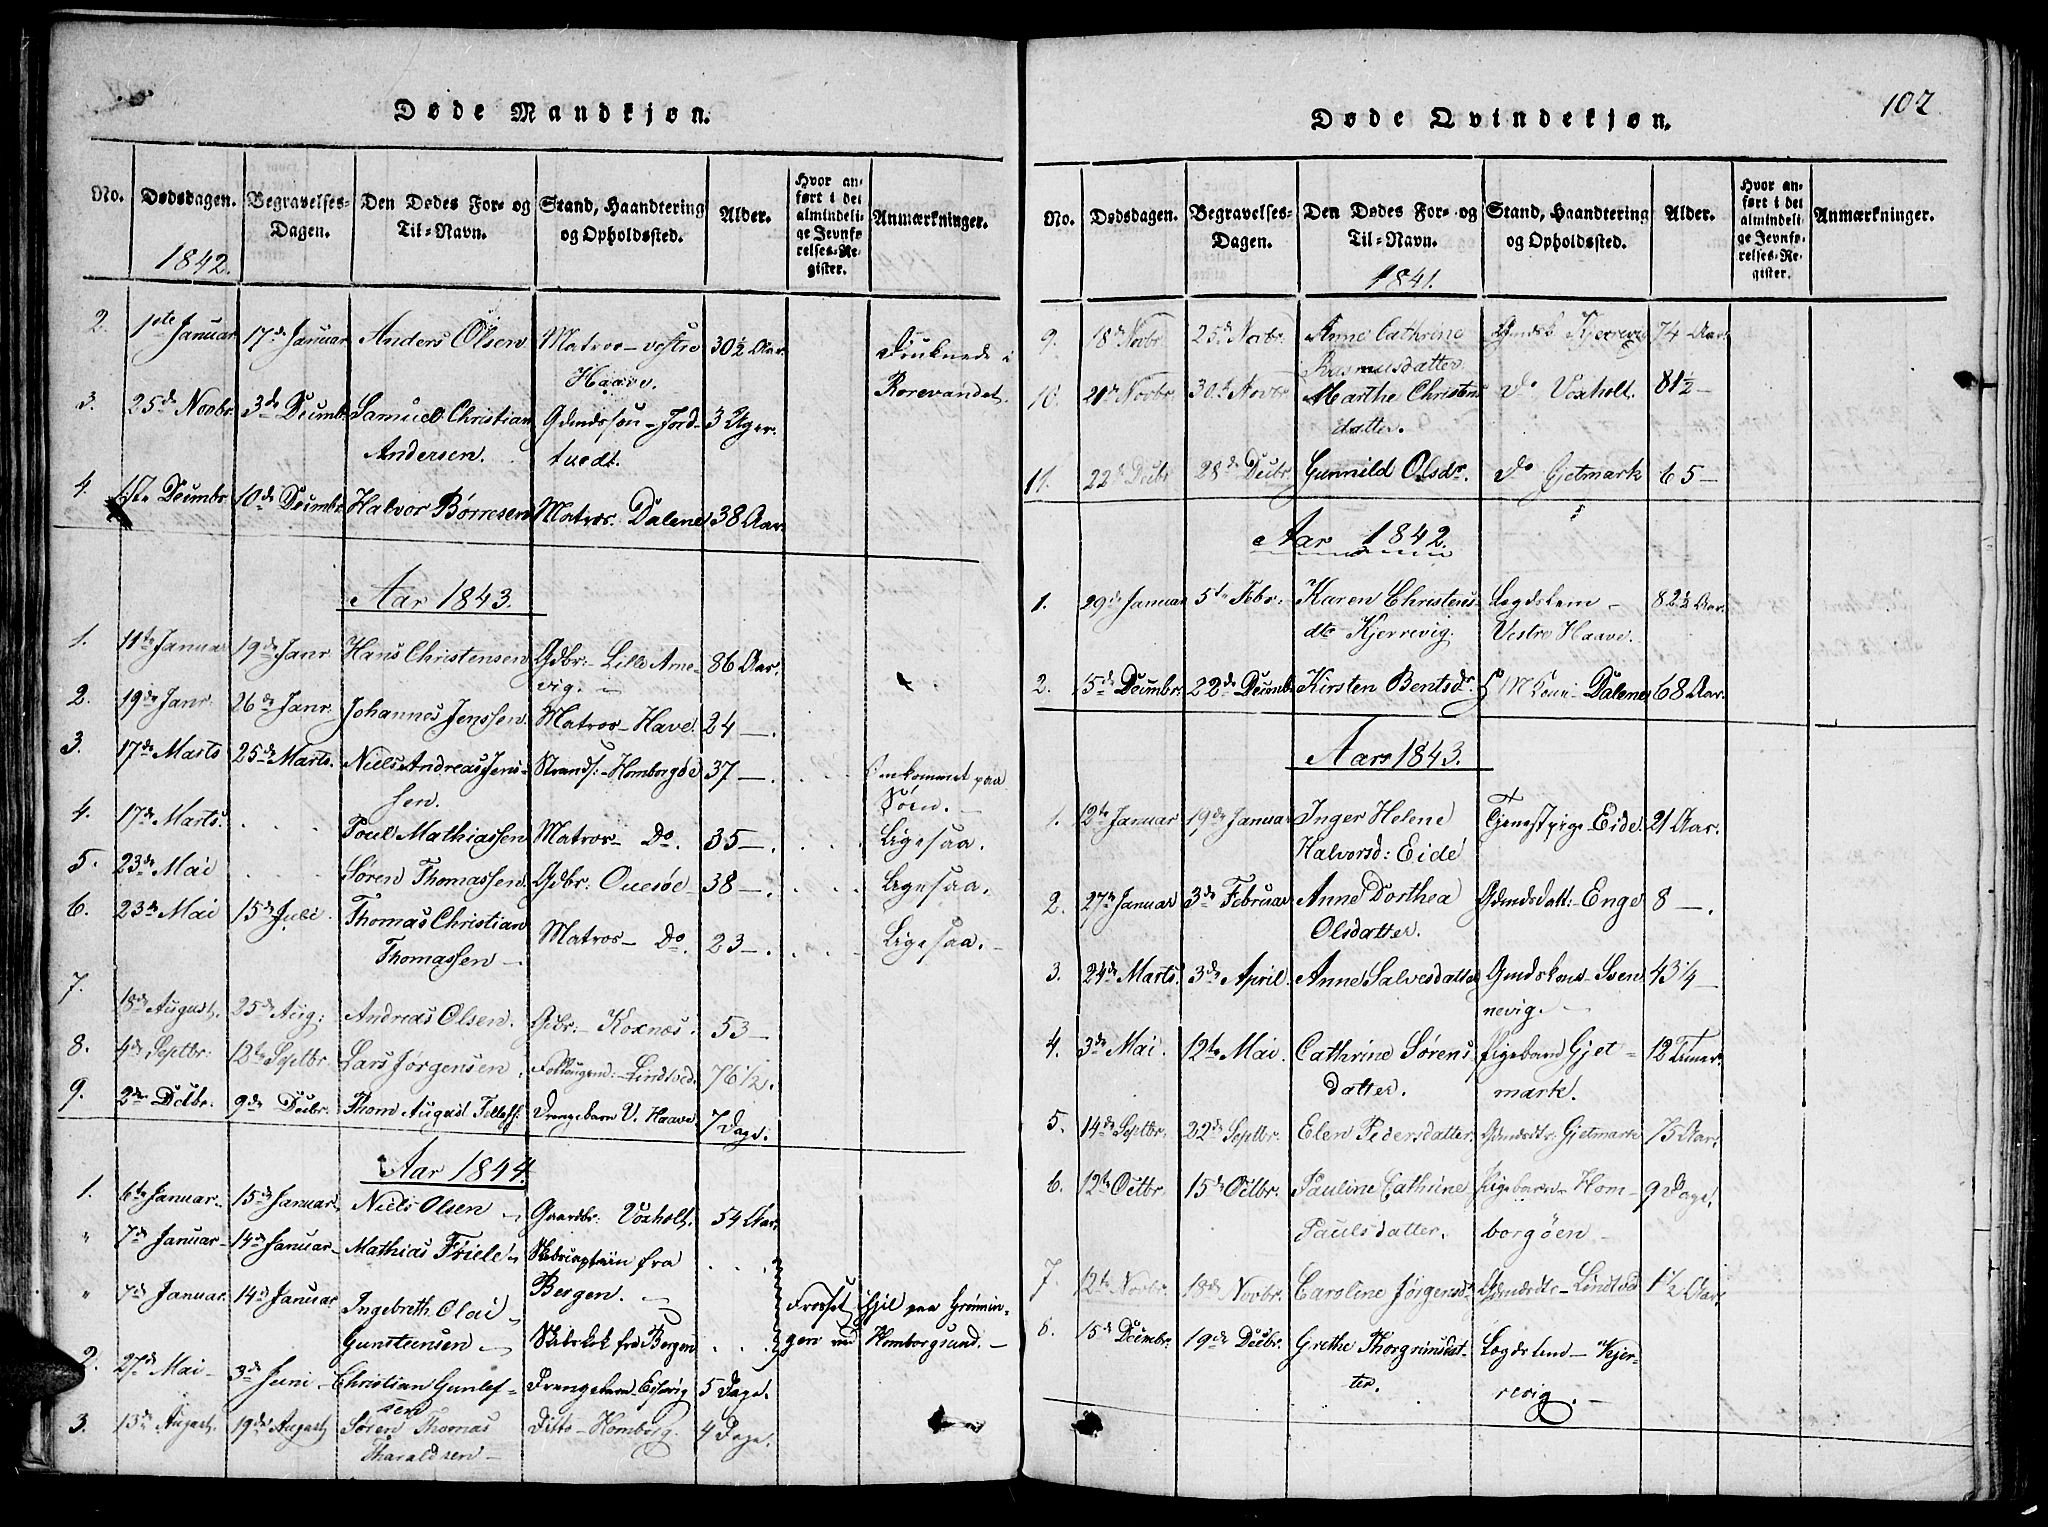 Døde Mandkjøn.
No. Dødsdagen. Begravelses-Dagen. Den Dødes For- og Til-Navn. Stand, Haandtering og Opholdssted. Alder. Hvor anført i det almindelige Jevnførelses-Register. Anmærkninger.
1842.
2. 1ste Januar 17de Januar Anders Olsen Matros - vestre 30½ Aar. Druknede i
Haave. Rorevandet.
3. 25de Novbr. 3de Decembr. Samuel Christian Gdmdssøn - Jord- 3 Uger.
Andersen. tvedt.
4. Decembr 10de Decembr Halvor Børresen Matros. Dalene 38 Aar.
Aar 1843.
1. 11te Januar 19de Janr Hans Christensen Gdbr:- Lille Arne- 86 Aar.
vig.
2. 19de Janr. 26de Janr. Johannes Jenssen. Matros - Have. 24 -.
3. 17de Marts 25de Marts. Niels Andreas Jens- Strands:- Homborgøe 37 -. Omkommet paa
sen. Søen.
4. 17de Marts. Poul Mathiassen Matros - Do. 35 -. Ligesaa.
5. 23de Mai Søren Thomassen Gdbr: Ouesøe 38 -. Ligesaa.
6. 23de Mai 15de Juli Thomas Christian Matros - Do. 23 -. Ligesaa. -
Thomassen -
7. 18de August. 25de Aug: Andreas Olsen. Gdbr:- Koxnæs. 53 -
8. 4de Septbr: 12te Septbr. Lars Jørgensen. Lindtved. 76½.
9. 2den Decbr. 9de Decbr. Thom August Tellefs: Drengebarn V. Haave 7 Dage.
Aar 1844.
1. 6te Januar. 15de Januar. Niels Olsen Gaardbr: Voxholt. 54 Aar.
" 7de Januar - 14de Januar - Mathias Friele Skibscaptain fra
Bergen.
" 7de Januar. 14de Januar Ingebreth Olai Frosset ihjel paa Grømin-
Gunsteensen - Skibskok fra Bergen gen ved Homborgsund. -
2. 27de Mai - 3de Juni - Christian Gunlef- Drengebarn - Eisevig 5 Dage.
sen
3. 13de August. 19de August Søren Thomas Ditto - Homborg. 4 Dage.
Tharaldsen -
102
Døde Qvindekjøn.
No. Dødsdagen. Begravelses-Dagen. Den Dødes For- og Til-Navn. Stand, Haandtering og Opholdssted. Alder. Hvor anført i det almindelige Jevnførelses-Register. Anmærkninger.
1841.
9. 18de Novbr 25de Novbr. Anne Cathrine Kjerrevig 74 Aar.
Rasmusdatter
10. 21de Novbr 30te Novbr Marthe Christens do Voxholt. 81½ -
datter.
11. 22de Decbr 28de Decbr. Gunnild Olsdr. do Gjetmark 65 -
Aar 1842.
1. 29de Januar 5te Febr. Karen Christens- Lægdslem - 82½ Aar.
dtr Kjerrevig. Vestre Haave.
2. 15de Decembr. 22de Decembr Kirsten Bentsdr. Dalene 68 Aar.
Aar 1843.
1. 12te Januar 19de Januar Inger Helene Tjenestpige - Eide. 21 Aar.
Halvorsd: Eide
2. 27de Januar 3de Februar Anne Dorthea Gdmdsdatt:- Enge 8 -.
Olsdatter.
3. 24de Marts. 3de April. Anne Salvesdatter Gmdskone - Sven- 43¼ -
nevig. -
4. 3de Mai. 12te Mai. Cathrine Sørens Pigebarn Gjet- 12 Timer.
datter. mark.
5. 14de Septbr. 22de Septbr. Elen Pedersdatter. Gjetmark 75 Aar.
6. 12te Octbr. 15de Octbr. Pauline Cathrine Pigebarn - Hom- 9 Dage.
Paulsdatter. borgøen -
7. 12te Novbr. 18de Novbr. Caroline Jørgensdr Gdmdsdtr - Lindtved 1½ Aar.
8. 15de Decembr. 19de Decbr. Grethe Thorgrimsdat- Lægdslem - Kjer-
ter. revig. -